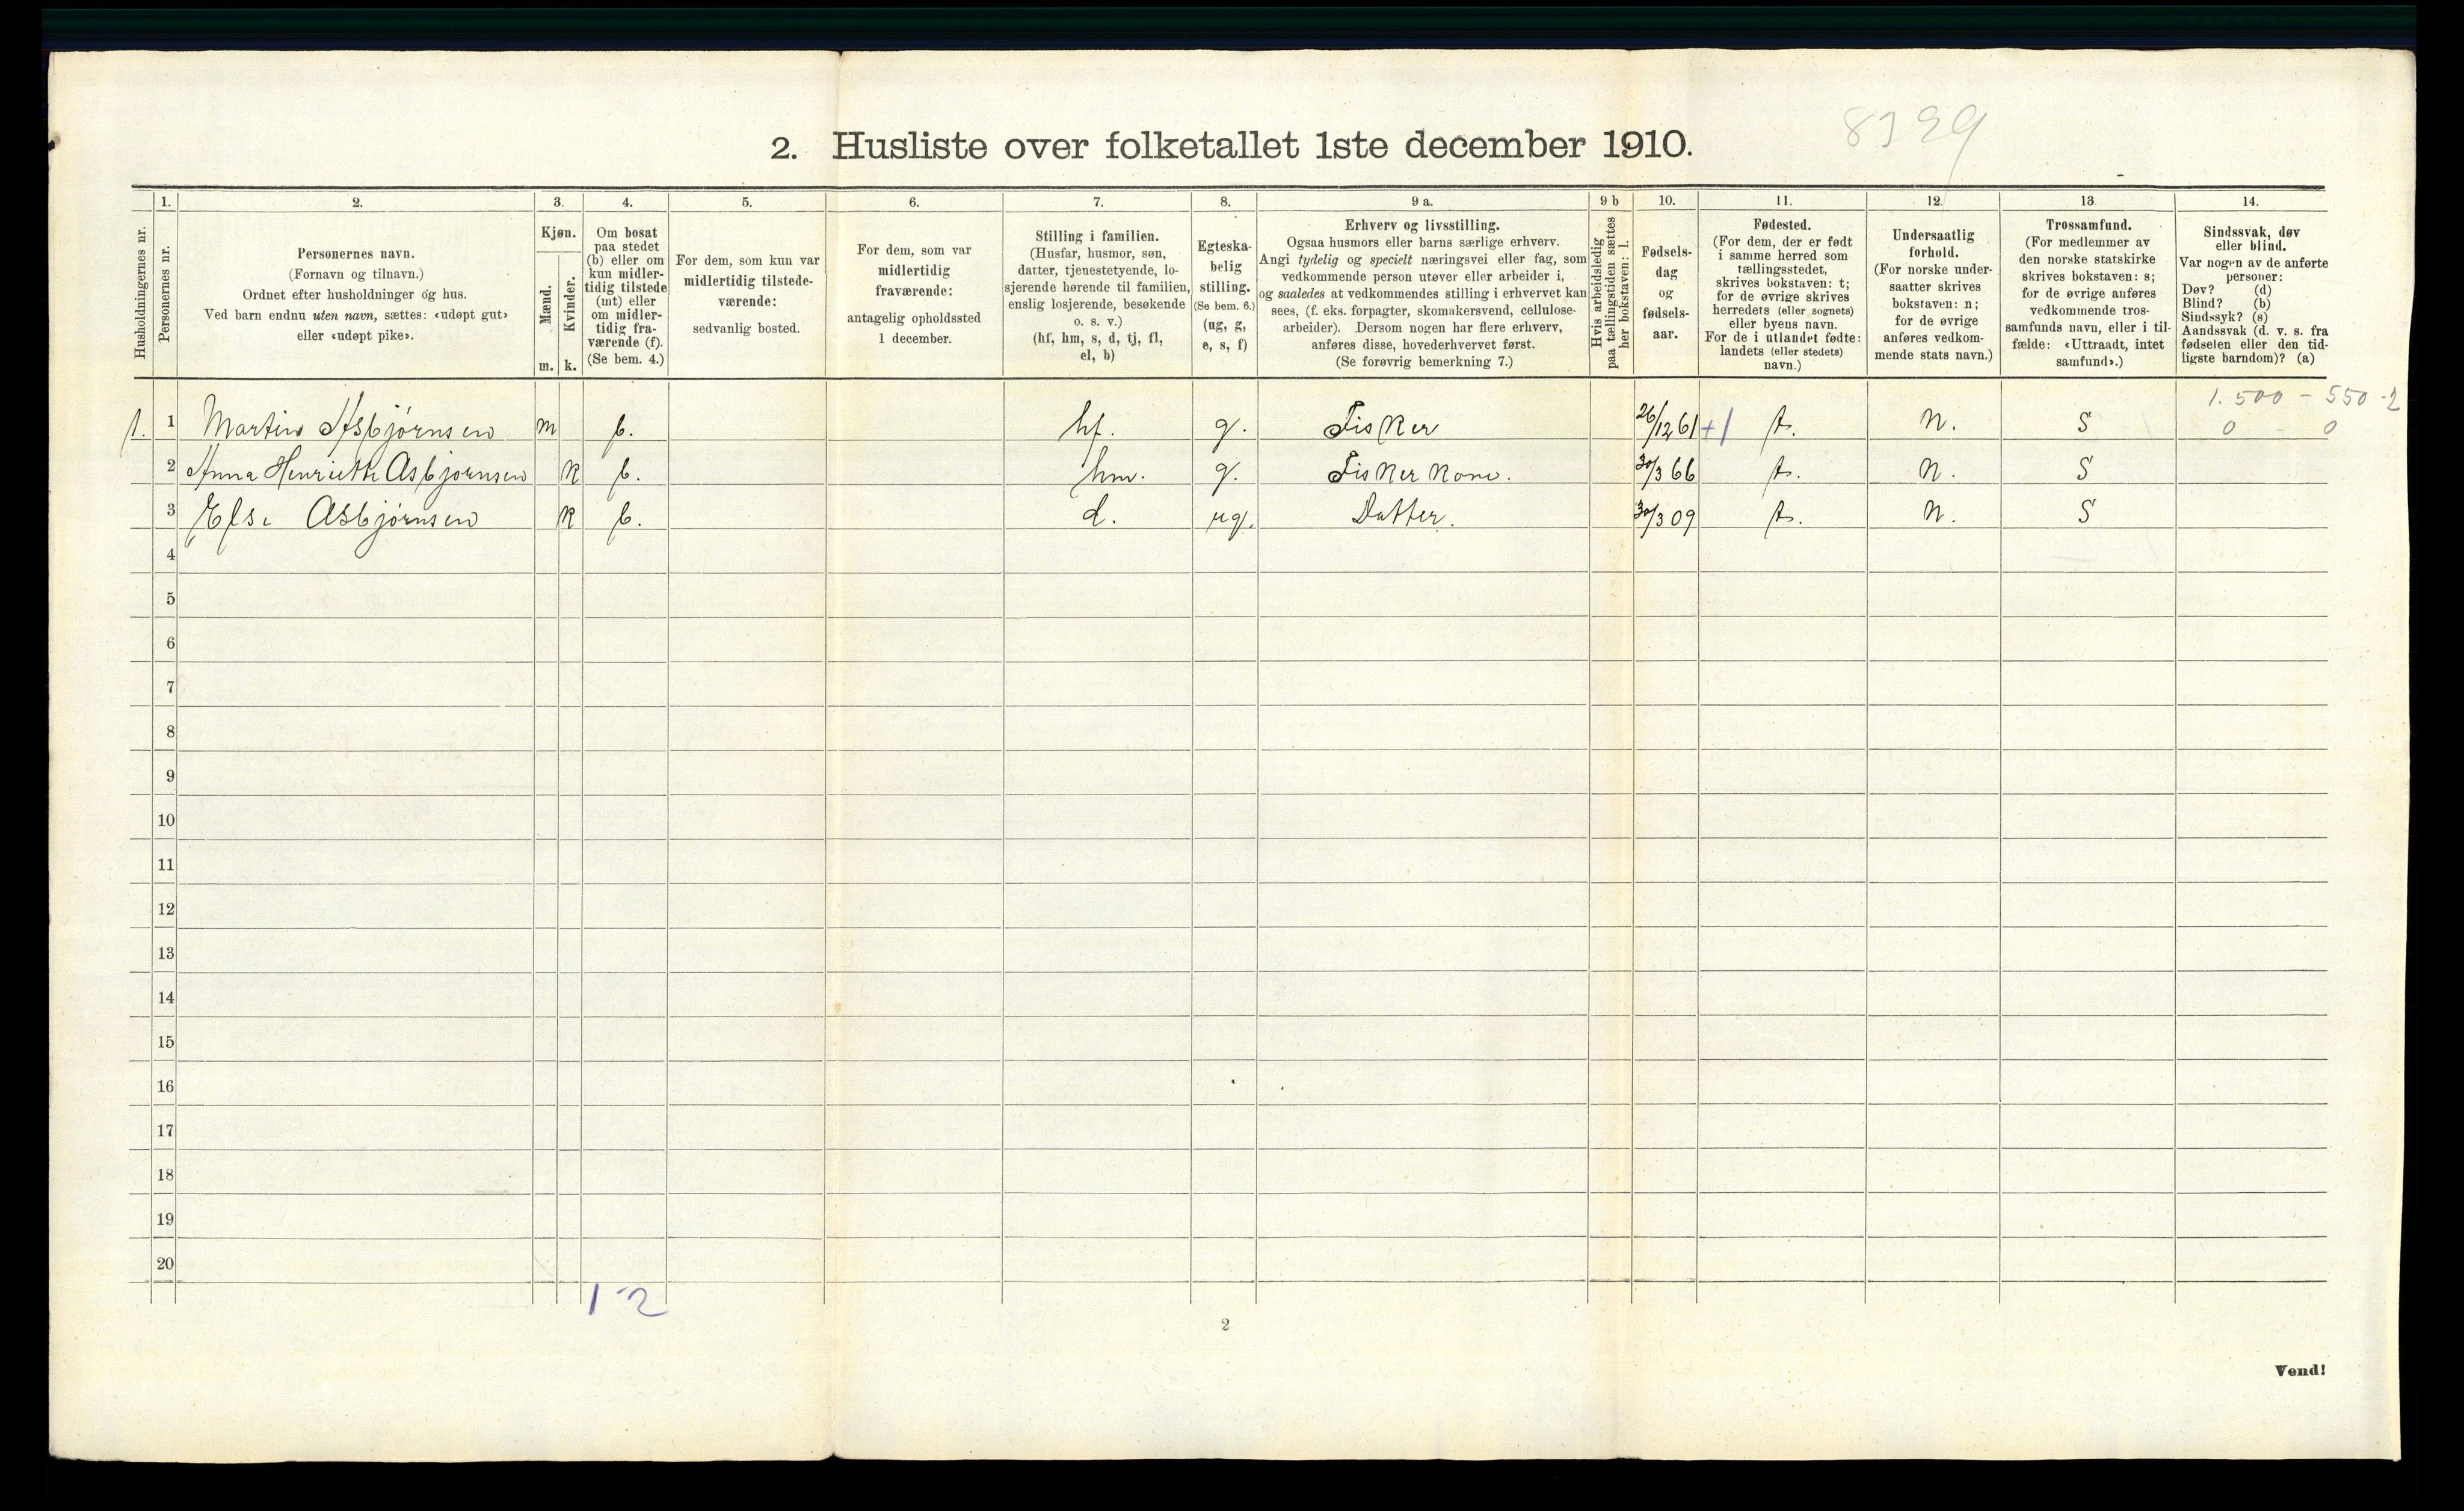 8399
2. Husliste over folketallet 1ste december 1910.
Husholdningernes nr.
1.
Personernes nr.
2.
Personernes navn.
(Fornavn og tilnavn.)
Ordnet efter husholdninger og hus.
Ved barn endnu uten navn, sættes: «udøpt gut»
eller «udøpt pike».
3.
Kjøn.
Mænd.
Kvinder.
m. k.
4.
Om bosat
paa stedet
(b) eller om
kun midler-
tidig tilstede
(mt) eller
om midler-
tidig fra-
værende (f).
(Se bem. 4.)
5.
For dem, som kun var
midlertidig tilstede-
værende:
sedvanlig bosted.
6.
For dem, som var
midlertidig
fraværende:
antagelig opholdssted
1 december.
7.
Stilling i familien.
(Husfar, husmor, søn,
datter, tjenestetyende, lo-
sjerende hørende til familien,
enslig losjerende, besøkende
o. s. v.)
(hf, hm, s, d, tj, fl,
el, b)
8.
Egteska-
belig
stilling.
(Se bem. 6.)
(ug, g,
e, s, f)
9 a.
Erhverv og livsstilling.
Ogsaa husmors eller barns særlige erhverv.
Angi tydelig og specielt næringsvei eller fag, som
vedkommende person utøver eller arbeider i,
og saaledes at vedkommendes stilling i erhvervet kan
sees, (f. eks. forpagter, skomakersvend, cellulose-
arbeider). Dersom nogen har flere erhverv,
anføres disse, hovederhvervet først.
(Se forøvrig bemerkning 7.)
9 b
Hvis arbeidsledig
paa tællingstiden sættes
her bokstaven: l.
10.
Fødsels-
dag
og
fødsels-
aar.
11.
Fødested.
(For dem, der er født
i samme herred som
tællingsstedet,
skrives bokstaven: t;
for de øvrige skrives
herredets (eller sognets)
eller byens navn.
For de i utlandet fødte:
landets (eller stedets)
navn.)
12.
Undersaatlig
forhold.
(For norske under-
saatter skrives
bokstaven: n;
for de øvrige
anføres vedkom-
mende stats navn.)
13
Trossamfund.
(For medlemmer av
den norske statskirke
skrives bokstaven: s;
for de øvrige anføres
vedkommende tros-
samfunds navn, eller i til-
fælde: «Uttraadt, intet
samfund».)
14.
Sindssvak, døv
eller blind.
Var nogen av de anførte
personer:
Døv? (d)
Blind? (b)
Sindssyk? (s)
Aandssvak (d. v. s. fra
fødselen eller den tid-
ligste barndom)? (a)
1. 500 - 550 - 2
1. 1 Martin Asbjørnsen m b. hf. g. Fisker 26/12 61 +1 t. n. S 0 - 0
2 Anna Henriette Asbjørnsen k b. hm. g. Fisker kone. 30/3 66 t. n. S
3 Else Asbjørnsen k b. d. ug. Datter. 30/3 09 t. n. S
4
5
6
7
8
9
10
11
12
13
14
15
16
17
18
19
20
1 2
2
Vend!